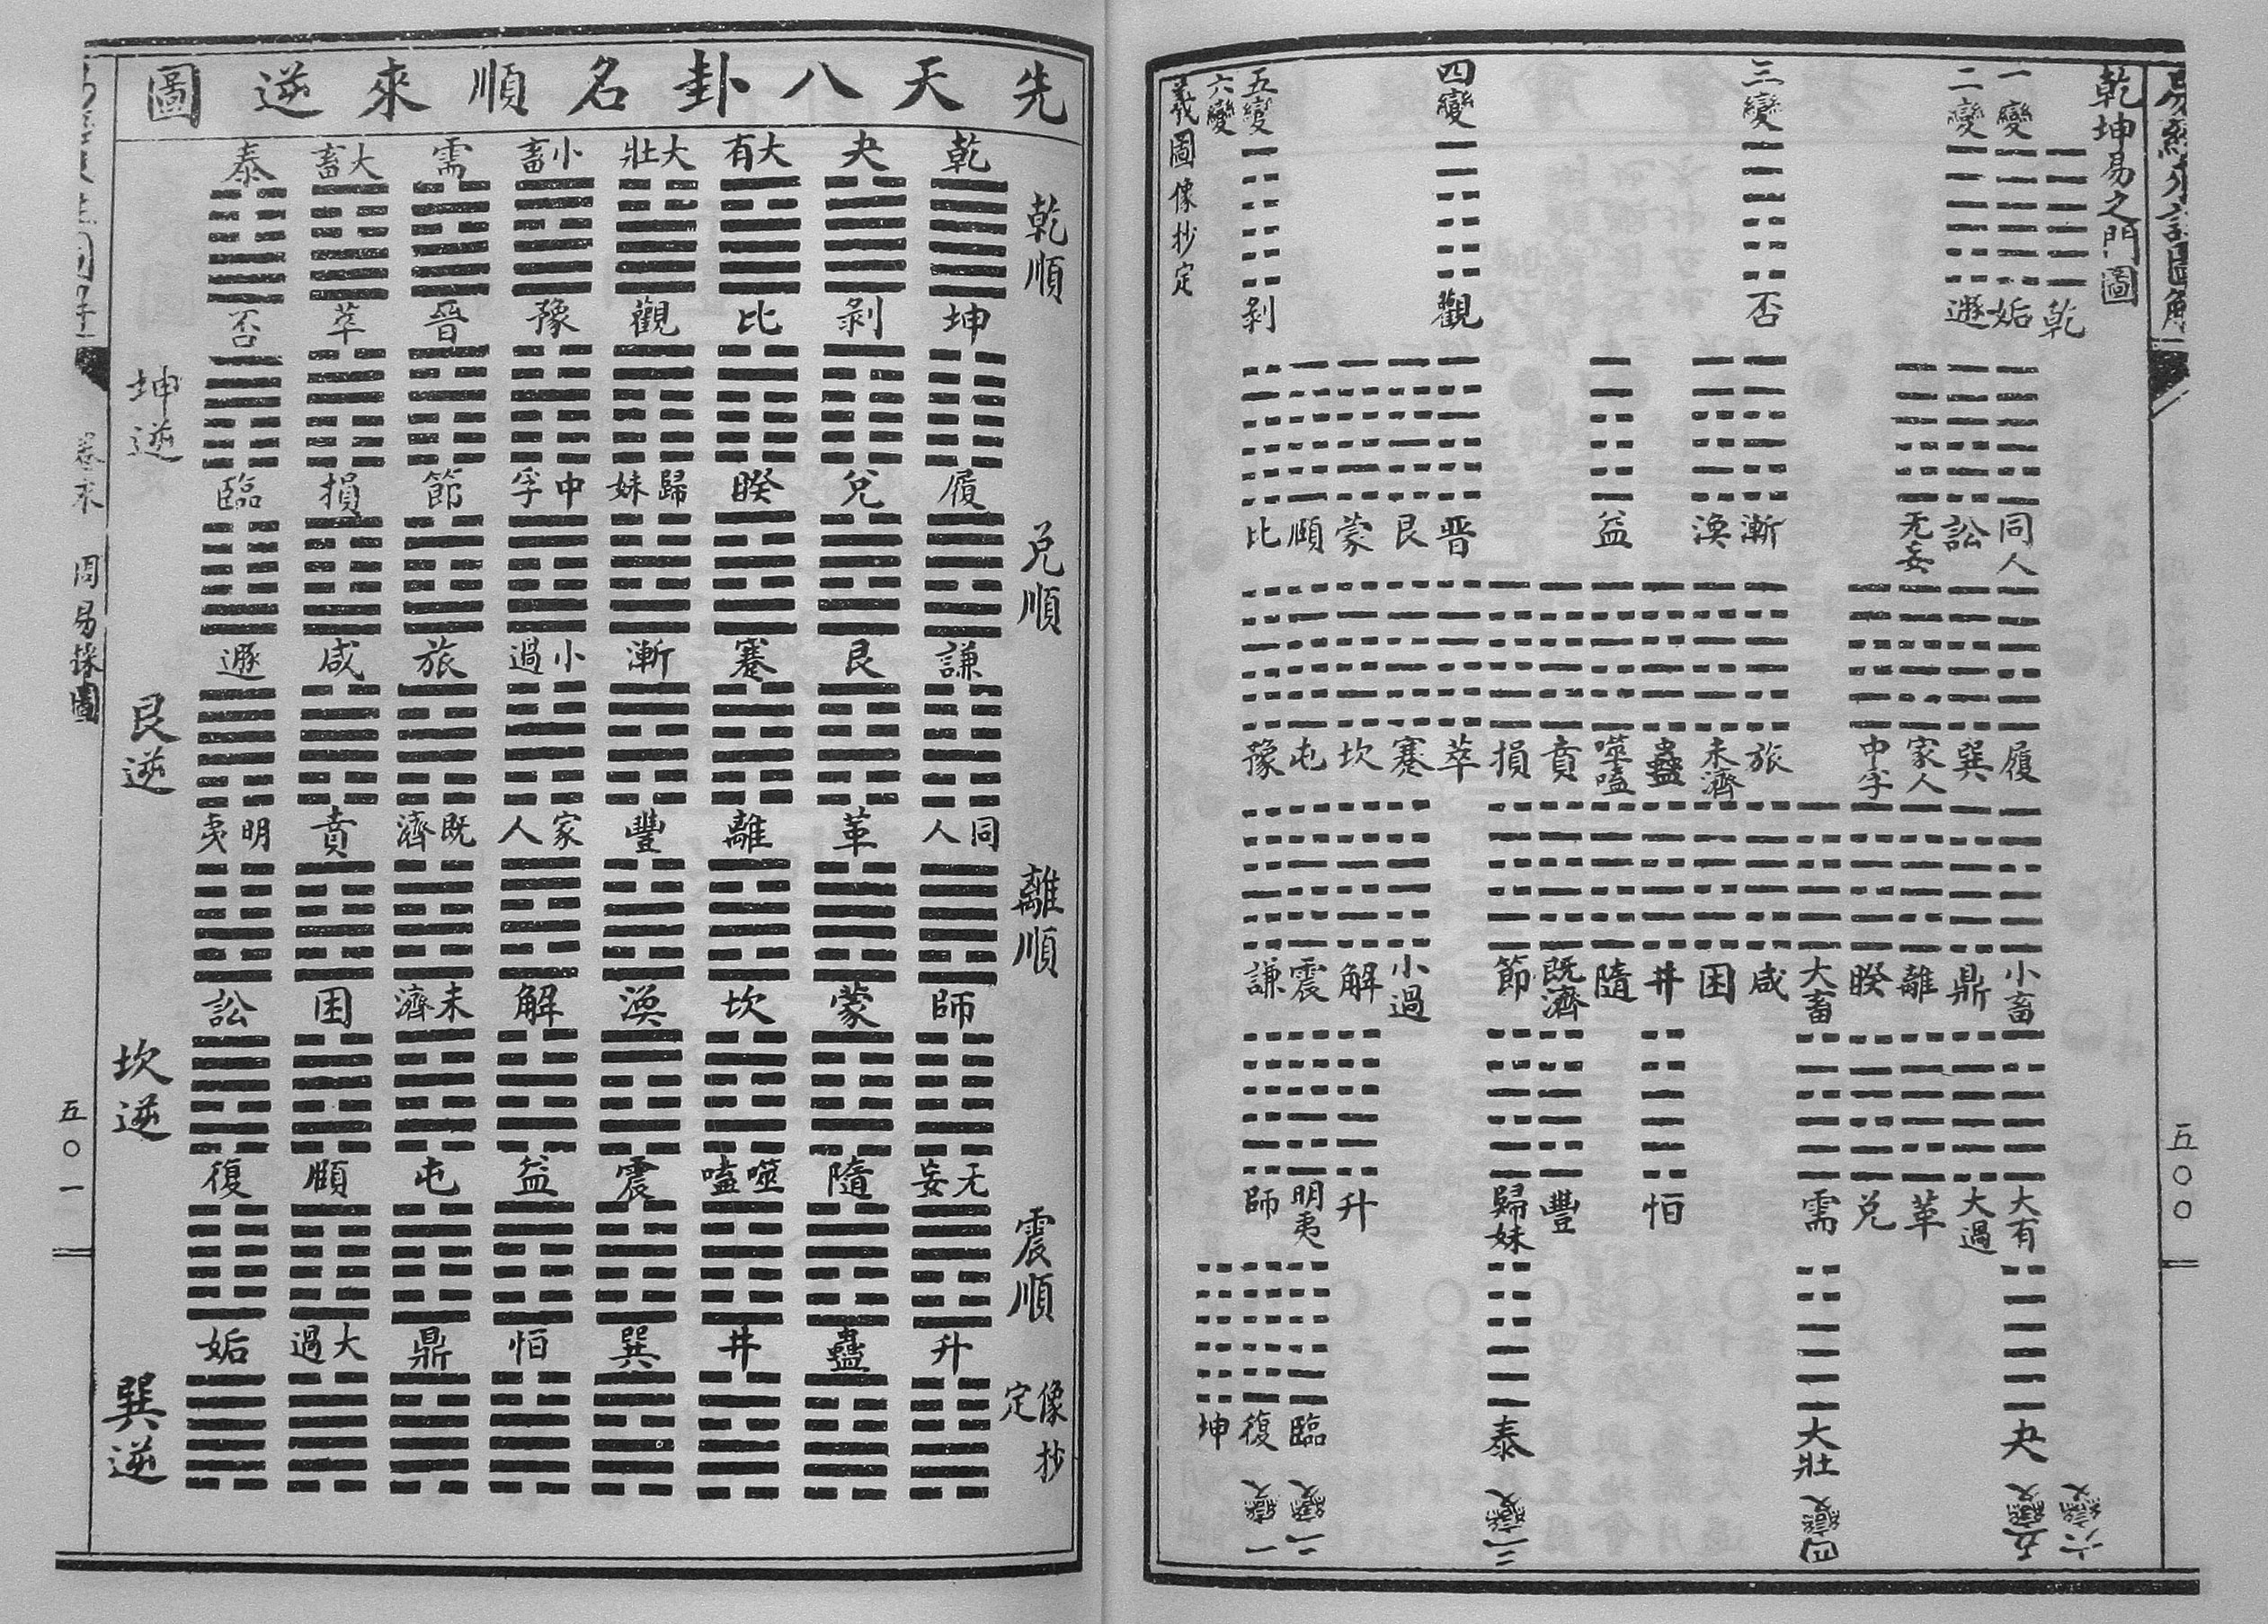 乾坤易之門圖
一變
二變
三變
四變
五變
六變
乾
姤
遯
否
觀
剝
同人
訟
无妄
漸
渙
益
晋
艮
蒙
頤
比
履
巽
家人
中孚
旅
未濟
蠱
噬嗑
賁
損
萃
蹇
坎
屯
豫
小畜
鼎
離
睽
大畜
咸
困
井
隨
既濟
節
小過
解
震
謙
大有
大過
革
兌
需
恒
豐
歸妹
升
明夷
師
夬
大壯
泰
臨
復
坤
六變
五變
四變
三變
二變
一變
羲圖像抄定
五〇〇
先天八卦名順來逆圖
乾順
乾 夬 大有 大壯 小畜 需 大畜 泰
坤 剝 比 觀 豫 晉 萃 否
坤逆
兌順
履 兌 睽 歸妹 中孚 節 損 臨
謙 艮 蹇 漸 小過 旅 咸 遯
艮逆
離順
同人 革 離 豐 家人 既濟 賁 明夷
師 蒙 坎 渙 解 未濟 困 訟
坎逆
震順
无妄 隨 噬嗑 震 益 屯 頤 復
升 蠱 井 巽 恒 鼎 大過 姤
巽逆
像抄定
五〇一